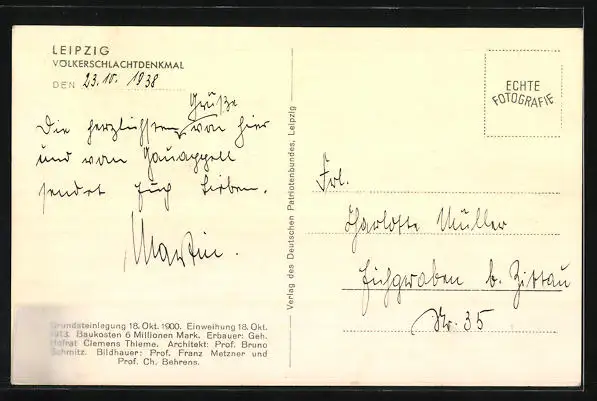 LEIPZIG
VÖLKERSCHLACHTDENKMAL
DEN 23.10. 1938
Grüße
Die herzlichsten von hier
und vom Gauappell
sendet Euch Lieben.
Martin.
Grundsteinlegung 18. Okt. 1900. Einweihung 18. Okt.
1913. Baukosten 6 Millionen Mark. Erbauer: Geh.
Hofrat Clemens Thieme. Architekt: Prof. Bruno
Schmitz. Bildhauer: Prof. Franz Metzner und
Prof. Ch. Behrens.
Verlag des Deutschen Patriotenbundes, Leipzig
ECHTE
FOTOGRAFIE
Frl.
Charlotte Müller
Eichgraben b. Zittau
Nr. 35